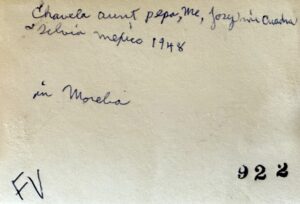 Chavela aunt pepa, Me, Josephine Cuadra
+ Silvia mexico 1948
in Morelia
922
FV